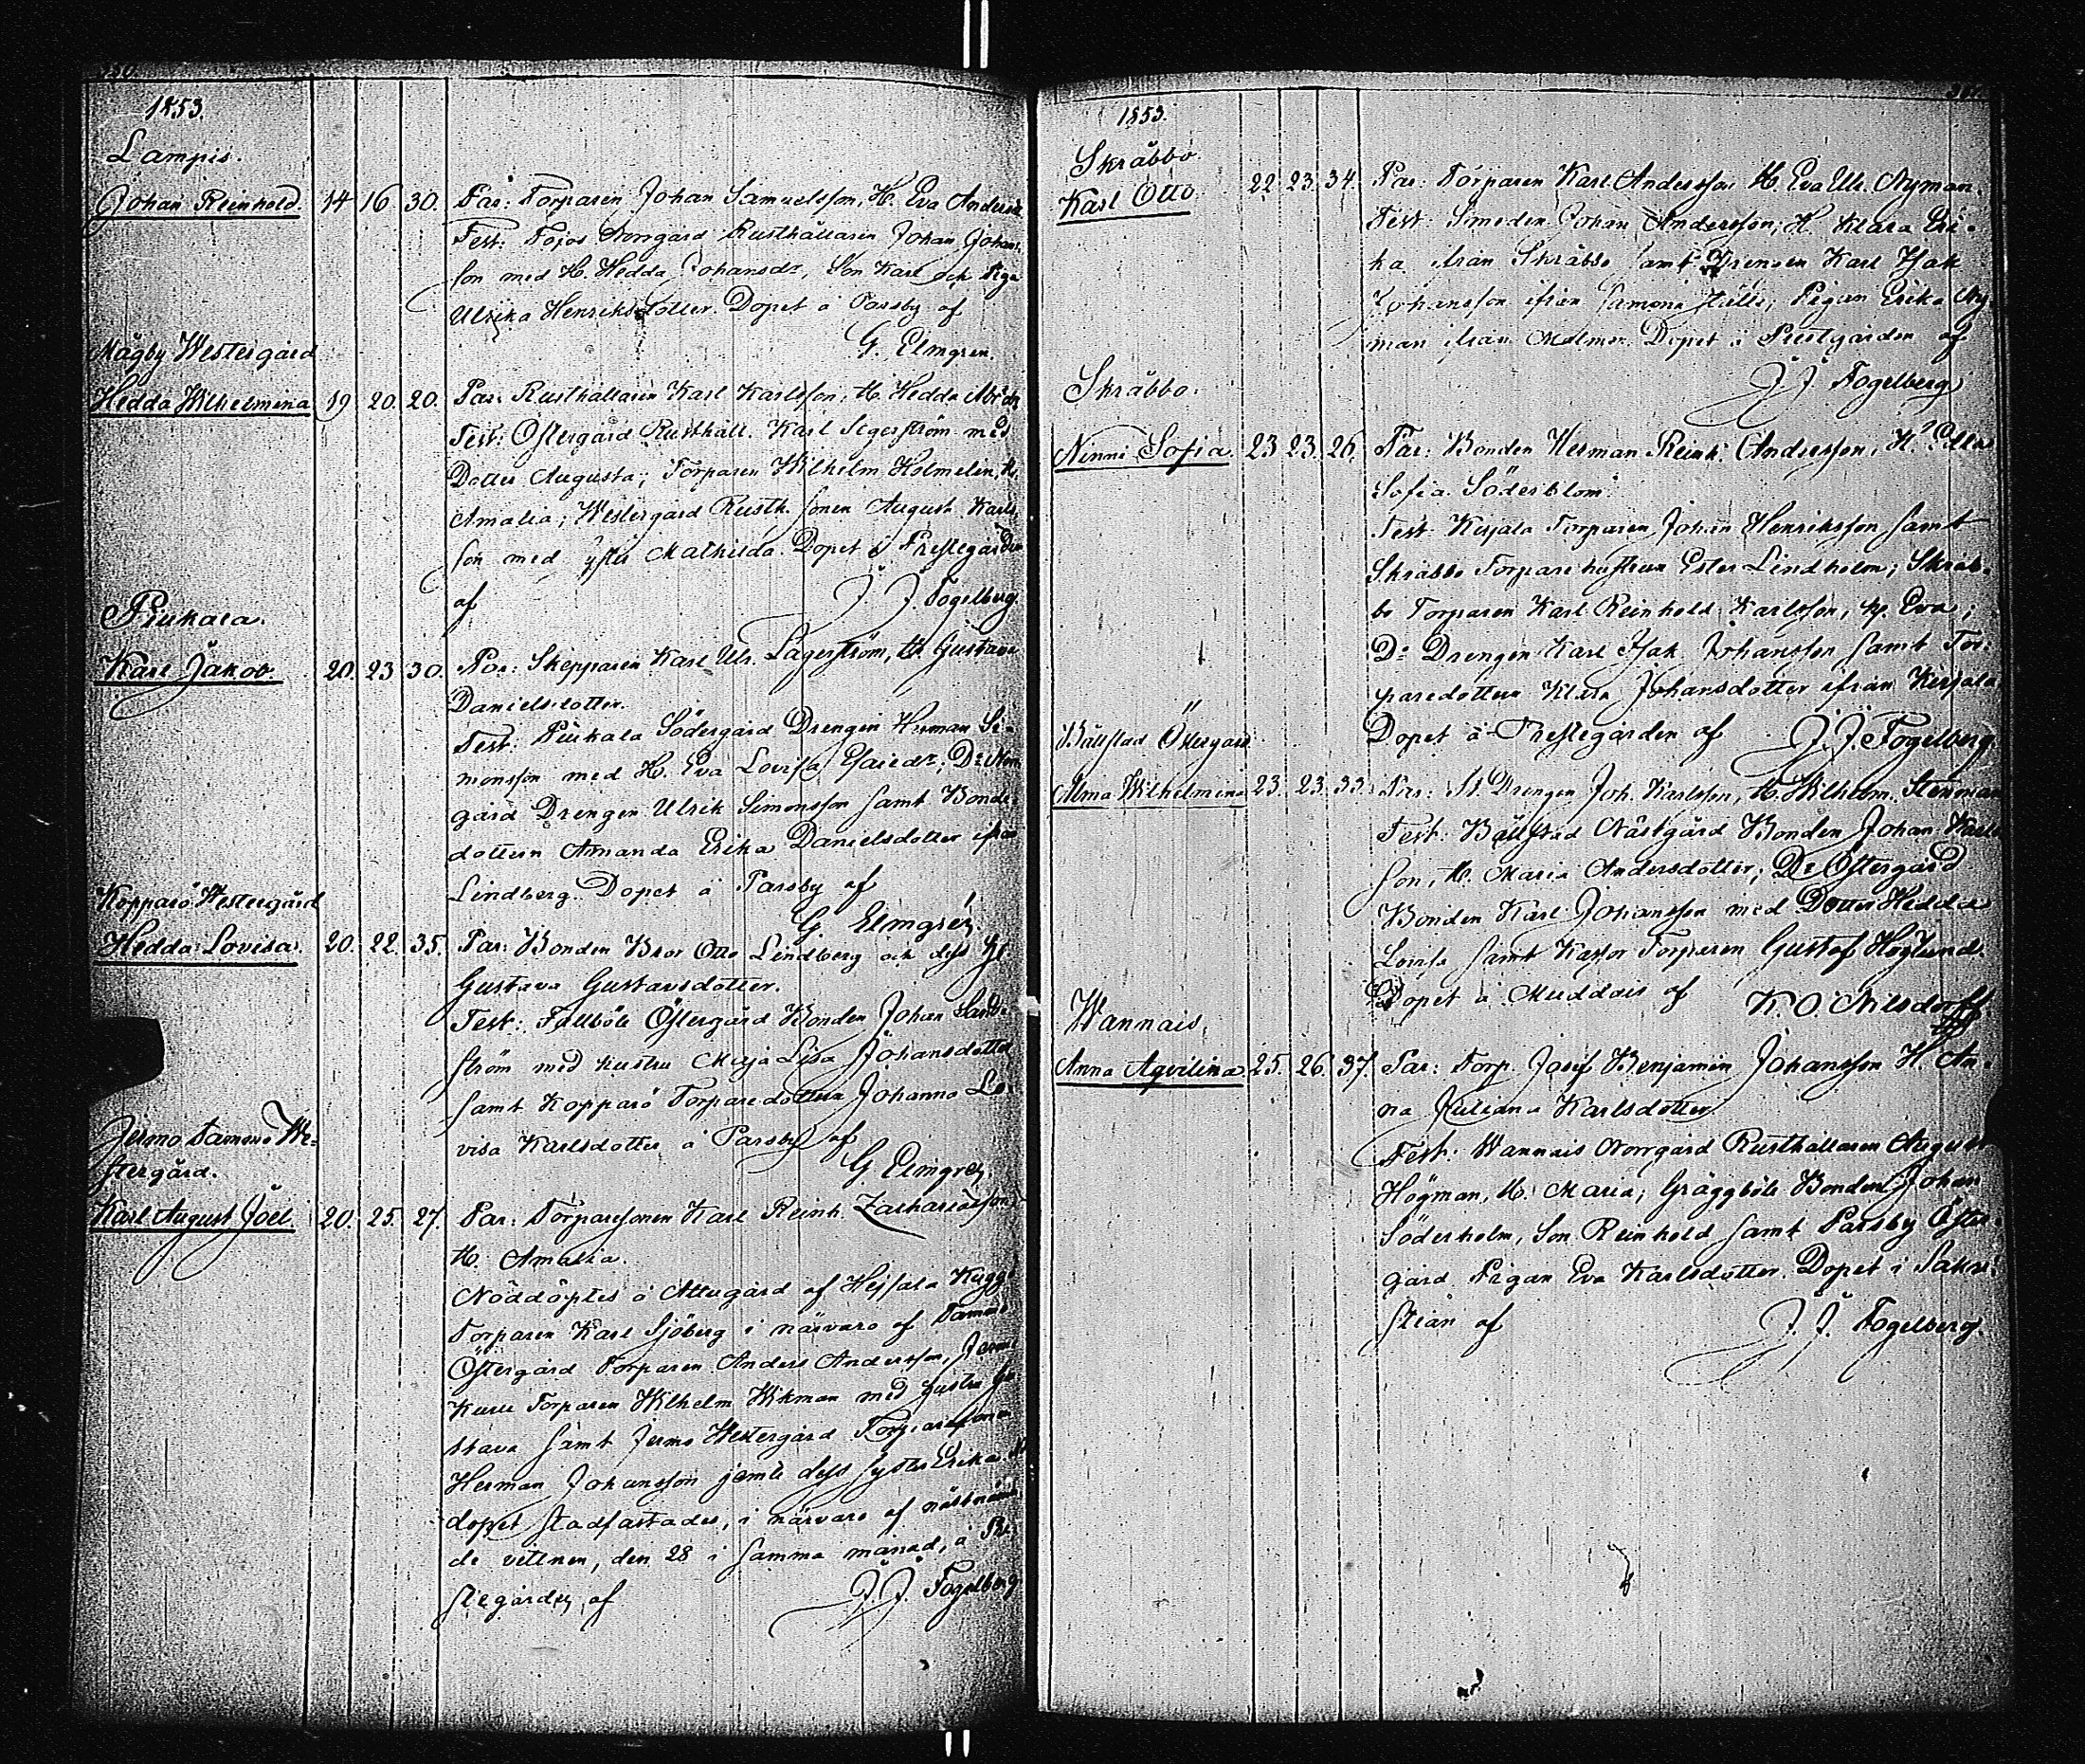 1853.
Lampis.
Johan Reinhold. 14 16 30. Par: Torparen Johan Samuelsson, H. Eva Anders
Test: Tojos Norrgård Rusthållaren Johan Johans
son med H. Hedda Johansdr, Son Karl och Piga
Ulrika Henriksdotter. Dopet å Parsby af
G. Elmgren.
Mågby Westergård
Hedda Wilhelmina 19 20. 20. Par: Rusthållaren Karl Karlsson, H. Hedda
Test: Östergård Rusthåll. Karl Segerström med
Dotter Augusta; Torparen Wilhelm Holmelin, H.
Amalia; Westergård Rusth. sonen August Karls
son med syster Mathilda. Dopet å Prestegården
af J. J. Fogelberg
Piukala.
Karl Jakob. 20. 23 30. Par: Skepparen Karl Ulr. Lagerström, H. Gustava
Danielsdotter.
Test: Piukala Södergård Drengen Herman Si-
monsson med H. Eva Lovisa Esaiedr; Do Norr
gård Drengen Ulrik Simonsson samt Bonde
dottern Amanda Erika Danielsdotter ifrån
Lindberg. Dopet å Parsby af
G. Elmgren.
Kopparö Westergård
Hedda Lovisa. 20. 22. 35. Par: Bonden Bror Otto Lindberg och dess H
Gustava Gustavsdotter.
Test: Fallböle Östergård Bonden Johan Land-
ström med hustru Maja Lisa Johansdotter
samt Kopparö Torparedottern Johanna Lo-
visa Karlsdotter å Parsby af
G. Elmgren
Jermo We-
stergård.
Karl August Joel. 20. 25. 27. Par: Torparesonen Karl Reinh. Zachariasson
H. Amalia.
Nöddöptes å Attugård af Hejsala Kugg
Torparen Karl Sjöberg i närvaro af
Östergård Torparen Anders Andersson, Jermo
Kuru Torparen Wilhelm Wikman med hustru Gu
stava samt Jermo Westergård Torparesonen
Herman Johansson jemte dess syster Erika
dopet stadfästades, i närvaro af nästnämn
de vittnen, den 28 i samma månad, å Pre
stegården af J. J. Fogelberg
1853.
Skräbbo.
Karl Otto. 22. 23. 34. Par: Torparen Karl Andersson H. Eva Ulr. Nyman.
Test: Smeden Johan Andersson, H. Klara Eri-
ka ifrån Skräbbo samt Drengen Karl Isak
Johansson ifrån; Pigan Erika Ny
man ifrån Malmen. Dopet å Prestgården af
J. J. Fogelberg
Skräbbo.
Ninni Sofia. 23 23. 26. Par: Bonden Herman Reinh. Andersson, H.
Sofia Söderblom.
Test: Kirjala Torparen Johan Henriksson samt
Skräbbo Torparehustrun Ester Lindholm; Skräb-
bo Torparen Karl Reinhold Karlsson, H. Eva;
Do Drengen Karl Isak Johansson samt Tor-
paredottern Klara Johansdotter ifrån Kirjala
Dopet å Prestegården af J. J. Fogelberg.
Bällstad Östergård
Alma Wilhelmina 23. 23. 33. Par: Drengen Joh. Karlsson, H. Wilhelm. Stenman
Test: Bällstad Nästgård Bonden Johan Karls
son, H. Maria Andersdotter; Do Östergård
Bonden Karl Johansson med Dotter Hedda
Lovisa samt Kassor Torparen Gustaf Höglund.
Dopet å Muddais af K. O. Nilsdorff
Wannais.
Anna Aqvilina 25. 26. 37. Par: Torp. Josef Benjamin Johansson H. An-
na Juliana Karlsdotter.
Test: Wannais Norrgård Rusthållaren August
Högman, H. Maria; Gräggböle Bonden Johan
Söderholm, Son Reinhold samt Parsby Öster-
gård Pigan Eva Karlsdotter. Dopet i Sakri-
stian af J. J. Fogelberg.